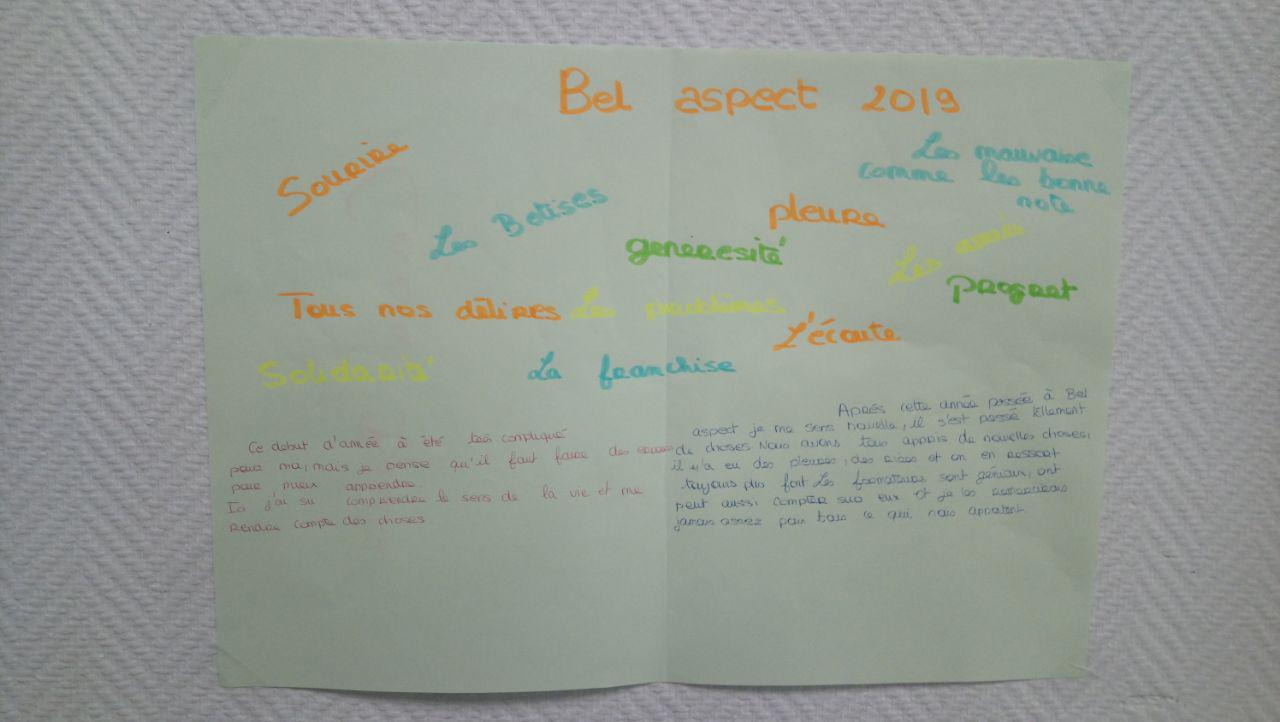 Bel aspect 2019
Sourire
Les mauvaise
comme les bonne
note
Les Betises
pleure
generesité
Les amis
progret
Tous nos délires
Les problèmes
L'écoute
Solidarité
La franchise
Ce debut d'année à été très compliqué
pour ma, mais je pense qu'il faut faire des
pour mieux apprendre.
Ici j'ai su comprendre le sens de la vie et me
rendre compte des choses
Après cette année passée à Bel
aspect je me sens nouvelle, il s'est passé tellement
de choses. Nous avons tous appris de nouvelles choses,
il y'a eu des pleures, des rires et on en ressort
toujours plus fort. Les formateurs sont géniaux, ont
peut aussi compter sur eux et je les remercirais
jamais assez pour tous ce qui nous apportent.